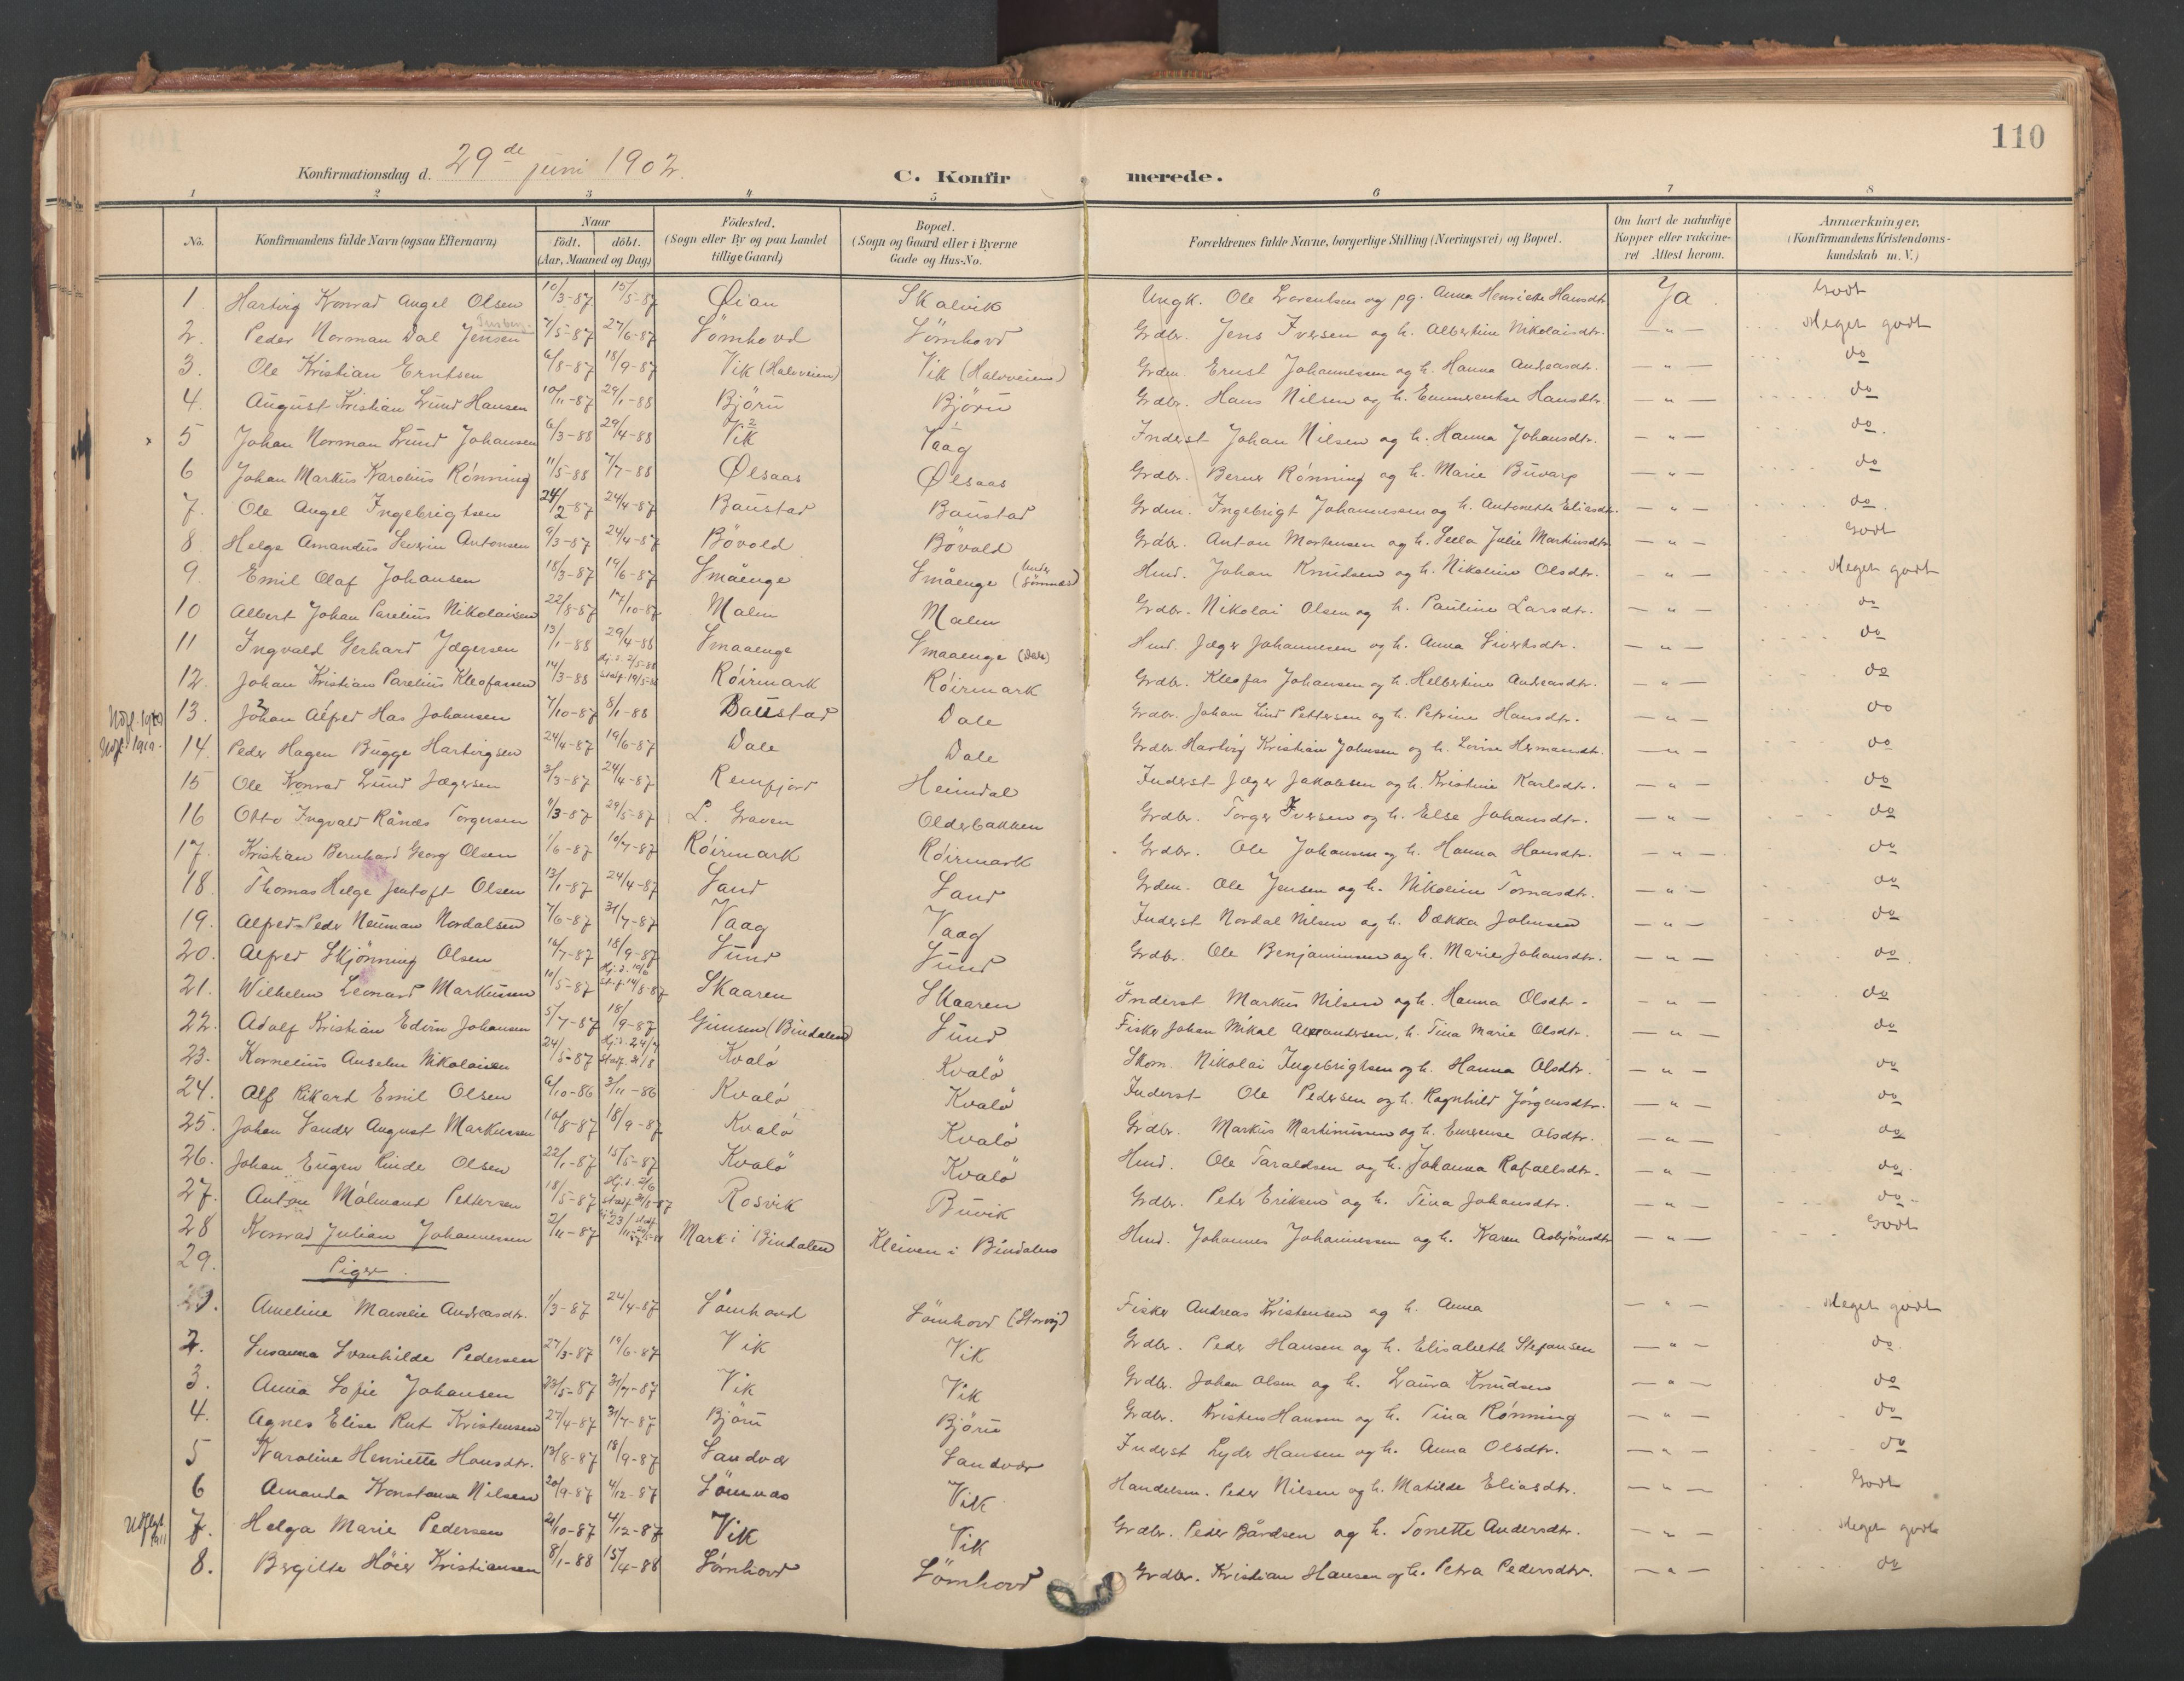 110
Konfirmationsdag d. 29de juni 1902. C. Konfirmerede.
1 2 3 4 5 6 7 8
No. Konfirmandens fulde Navn (ogsaa Efternavn) Naar født. døbt. (Aar, Maaned og Dag) Fødested. (Sogn eller By og paa Landet tillige Gaard) Bopæl. (Sogn og Gaard eller i Byerne Gade og Hus-No. Forældrenes fulde Navne, borgerlige Stilling (Næringsvei) og Bopæl. Om havt de naturlige Kopper eller vakcineret Attest herom. Anmærkninger, (Konfirmandens Kristendomskundskab m. V.)
1 Hartvig Konrad Angel Olsen 10/3-87 15/5-87 Øian Skalvik Ungk. Ole Lorentsen og pg. Anna Henrikke Hansdtr Ja Godt
2. Peder Norman Dal Jensen 7/5-87 27/6-87 Sömhovd Sömhovd Grdbr. Jens Iversen og h. Albertine Nikolaisdtr. — " — Meget godt
3. Ole Kristian Erntsen 6/8-87 18/9-87 Vik (Halvveien) Vik (Halvveien) Grdm. Ernst Johannessen og h. Hanna Andreasdtr. — " — do
4. August Kristian Lund Hansen 10/11-87 29/1-88 Björn Björn Grdbr. Hans Nilsen og h. Emmerentse Hansdtr. — " — do
5 Johan Norman Lund Johansen 6/3-88 29/4-88 Vik Vaag Inderst Johan Nilsen og h. Hanna Johansdtr. — " — do.
6 Johan Markus Karolius Rónning 11/5-88 7/7-88 Ølsaas Ølsaas Grdbr. Berner Rónning og h. Marie Buvarp — " — do
7. Ole Angel Ingebrigtsen 24/2-87 24/4-87 Baustad Baustad Grdm. Ingebrigt Johannessen og h. Antonette Eliasdtr. — " — do.
8 Helge Amandus Severin Antonsen 9/3-87 24/4-87 Bövold Bövold Grdbr. Anton Mortensen og h. Sella Julie Martinsdtr — " — Godt
9. Emil Olaf Johansen 18/3-87 19/6-87 Småenge Småenge (under Sömnes) Hmd. Johan Knudsen og h. Nikoline Olsdtr. — " — Meget godt
10 Albert Johan Parelius Nikolaisen 22/8-87 17/10-87 Malm Malm Grdbr. Nikolai Olsen og h. Pauline Larsdtr. — " — do
11 Ingvald Gerhard Jægersen 13/1-88 29/4-88 Smaaenge Smaaenge (Dale) Hmd. Jæger Johannesen og h. Anna Sivertsdtr. — " — do
12. Johan Kristian Parelius Kleofassen 14/3-88 Hj.d. 2/5-88 Stadf. 19/5-88 Róirmark Róirmark Grdbr. Kleofas Johansen og h. Helbertine Andreasdtr. — " — do
13. Johan Alfred Has Johansen 7/10-87 8/1-88 Baustad Dale Grdbr. Johan Lund Pettersen og h. Petrine Hansdtr. — " — do
14. Peder Hagen Bugge Hartvigsen 24/4-87 19/6-87 Dale Dale Grdbr Hartvig Kristian Johnsen og h. Lovise Hermandtr. — " — do
15 Ole Konrad Lund Jægersen 3/3-87 24/4-87 Remfjord Heimdal Inderst Jæger Jakobsen og h. Kristine Karlsdtr. — " — do
16 Otto Ingvald Rånæs Torgersen 11/3-87 29/5-87 L. Graven Olderbakken Grdbr. Torger Iversen og h. Else Johansdtr. — " — do
17. Kristian Bernhard Georg Olsen 1/6-87 10/7-87 Róirmark Róirmark Grdbr. Ole Johansen og h. Hanna Hansdtr. — " — do
18. Thomas Helge Jentoft Olsen 13/1-87 24/4-87 Sand Sand Grdm. Ole Jensen og h. Nikoline Tomasdtr. — " — do
19. Alfred Peder Neuman Nordalsen 7/6-87 31/7-87 Vaag Vaag Inderst Nordal Nilsen og h. Dækka Johnsen — " — do
20. Alfred Skjönning Olsen 16/7-87 18/9-87 Sund Sund Grdbr. Ole Benjaminsen og h. Marie Johansdtr. — " — do.
21. Wilhelm Leonard Markussen 10/5-87 Hj.d. 10/6 St.f. 14/8-87 Skaaren Skaaren Inderst Markus Nilsen og h. Hanna Olsdtr. — " — do
22. Adolf Kristian Edvin Johansen 5/7-87 18/9-87 Gimsen (Bindalen) Sund Fisker Johan Mikal Alexandersen, h. Tina Marie Olsdtr. — " — do
23. Kornelius Anselm Nikolaisen 24/5-87 Hj.d. 24/7 Stadf. 21/8 Kvaló Kvalö Skom. Nikolai Ingebrigtsen og h. Hanna Olsdtr. — " — do
24. Alf Rikard Emil Olsen 6/10-86 3/11-86 Kvaló Kvalö Inderst Ole Pedersen og h. Ragnhild Jörgensdtr. — " — do
25. Johan Sander August Markussen 10/8-87 18/9-87 Kvaló Kvalö Grdbr. Markus Martinussen og h. Emerense Olsdtr. — " — do
26. Johan Eugen Rinde Olsen 22/1-87 15/5-87 Kvalö Kvalö Hmd. Ole Taraldsen og h. Johanna Rafaelsdtr. — " — do.
27. Anton Målmand Pettersen 18/5-87 Hj.d. 2/6 Stadf. 21/8-87 Rosvik Buvik Grdbr. Peter Eriksen og h. Tina Johansdtr. — " — do.
28 Konrad Julian Johannessen 2/11-87 23/11-87 Mark i Bindalen Kleiven i Bindalen Hmd. Johannes Johannessen og h. Karen Asbjörnsdtr — " — Godt
29. Piger.
Ameline Marselie Andreasdtr. 1/3-87 24/4-87 Sömhovd Sömhovd (Storvig) Fisker Andreas Kristensen og h. Anna — " — Meget godt
2. Susanna Svanhilde Pedersen 27/3-87 19/6-87 Vik Vik Grdbr. Peder Hansen og h. Elisabeth Stefansen — " — do.
3. Anna Sofie Johansen 23/5-87 31/7-87 Vik Vik Grdbr. Johan Olsen og h. Laura Knudsen — " — do
4. Agnes Elise Rut Kristensen 27/4-87 31/7-87 Björn Björn Grdbr. Kristen Hansen og h. Tina Rónning — " — do
5 Karoline Henriette Hansdtr. 13/8-87 18/9-87 Sandvær Sandvær Inderst Lyder Hansen og h. Anna Olsdtr. — " — do
6 Amanda Konstanse Nilsen 20/9-87 4/12-87 Sömnæs Vik Handelsm. Peder Nilsen og h. Matilde Eliasdtr. — " — Godt
Udflyt. 1911 7. Helga Marie Pedersen 21/10-87 4/12-87 Vik Vik Grdbr. Peder Bårdsen og h. Tonette Andersdtr. — " — Meget godt
8. Bergitte Höier Kristiansen 8/1-88 15/4-88 Sómhovd Sömhovd Grdbr. Kristian Hansen og h. Petra Pedersdtr. — " — do